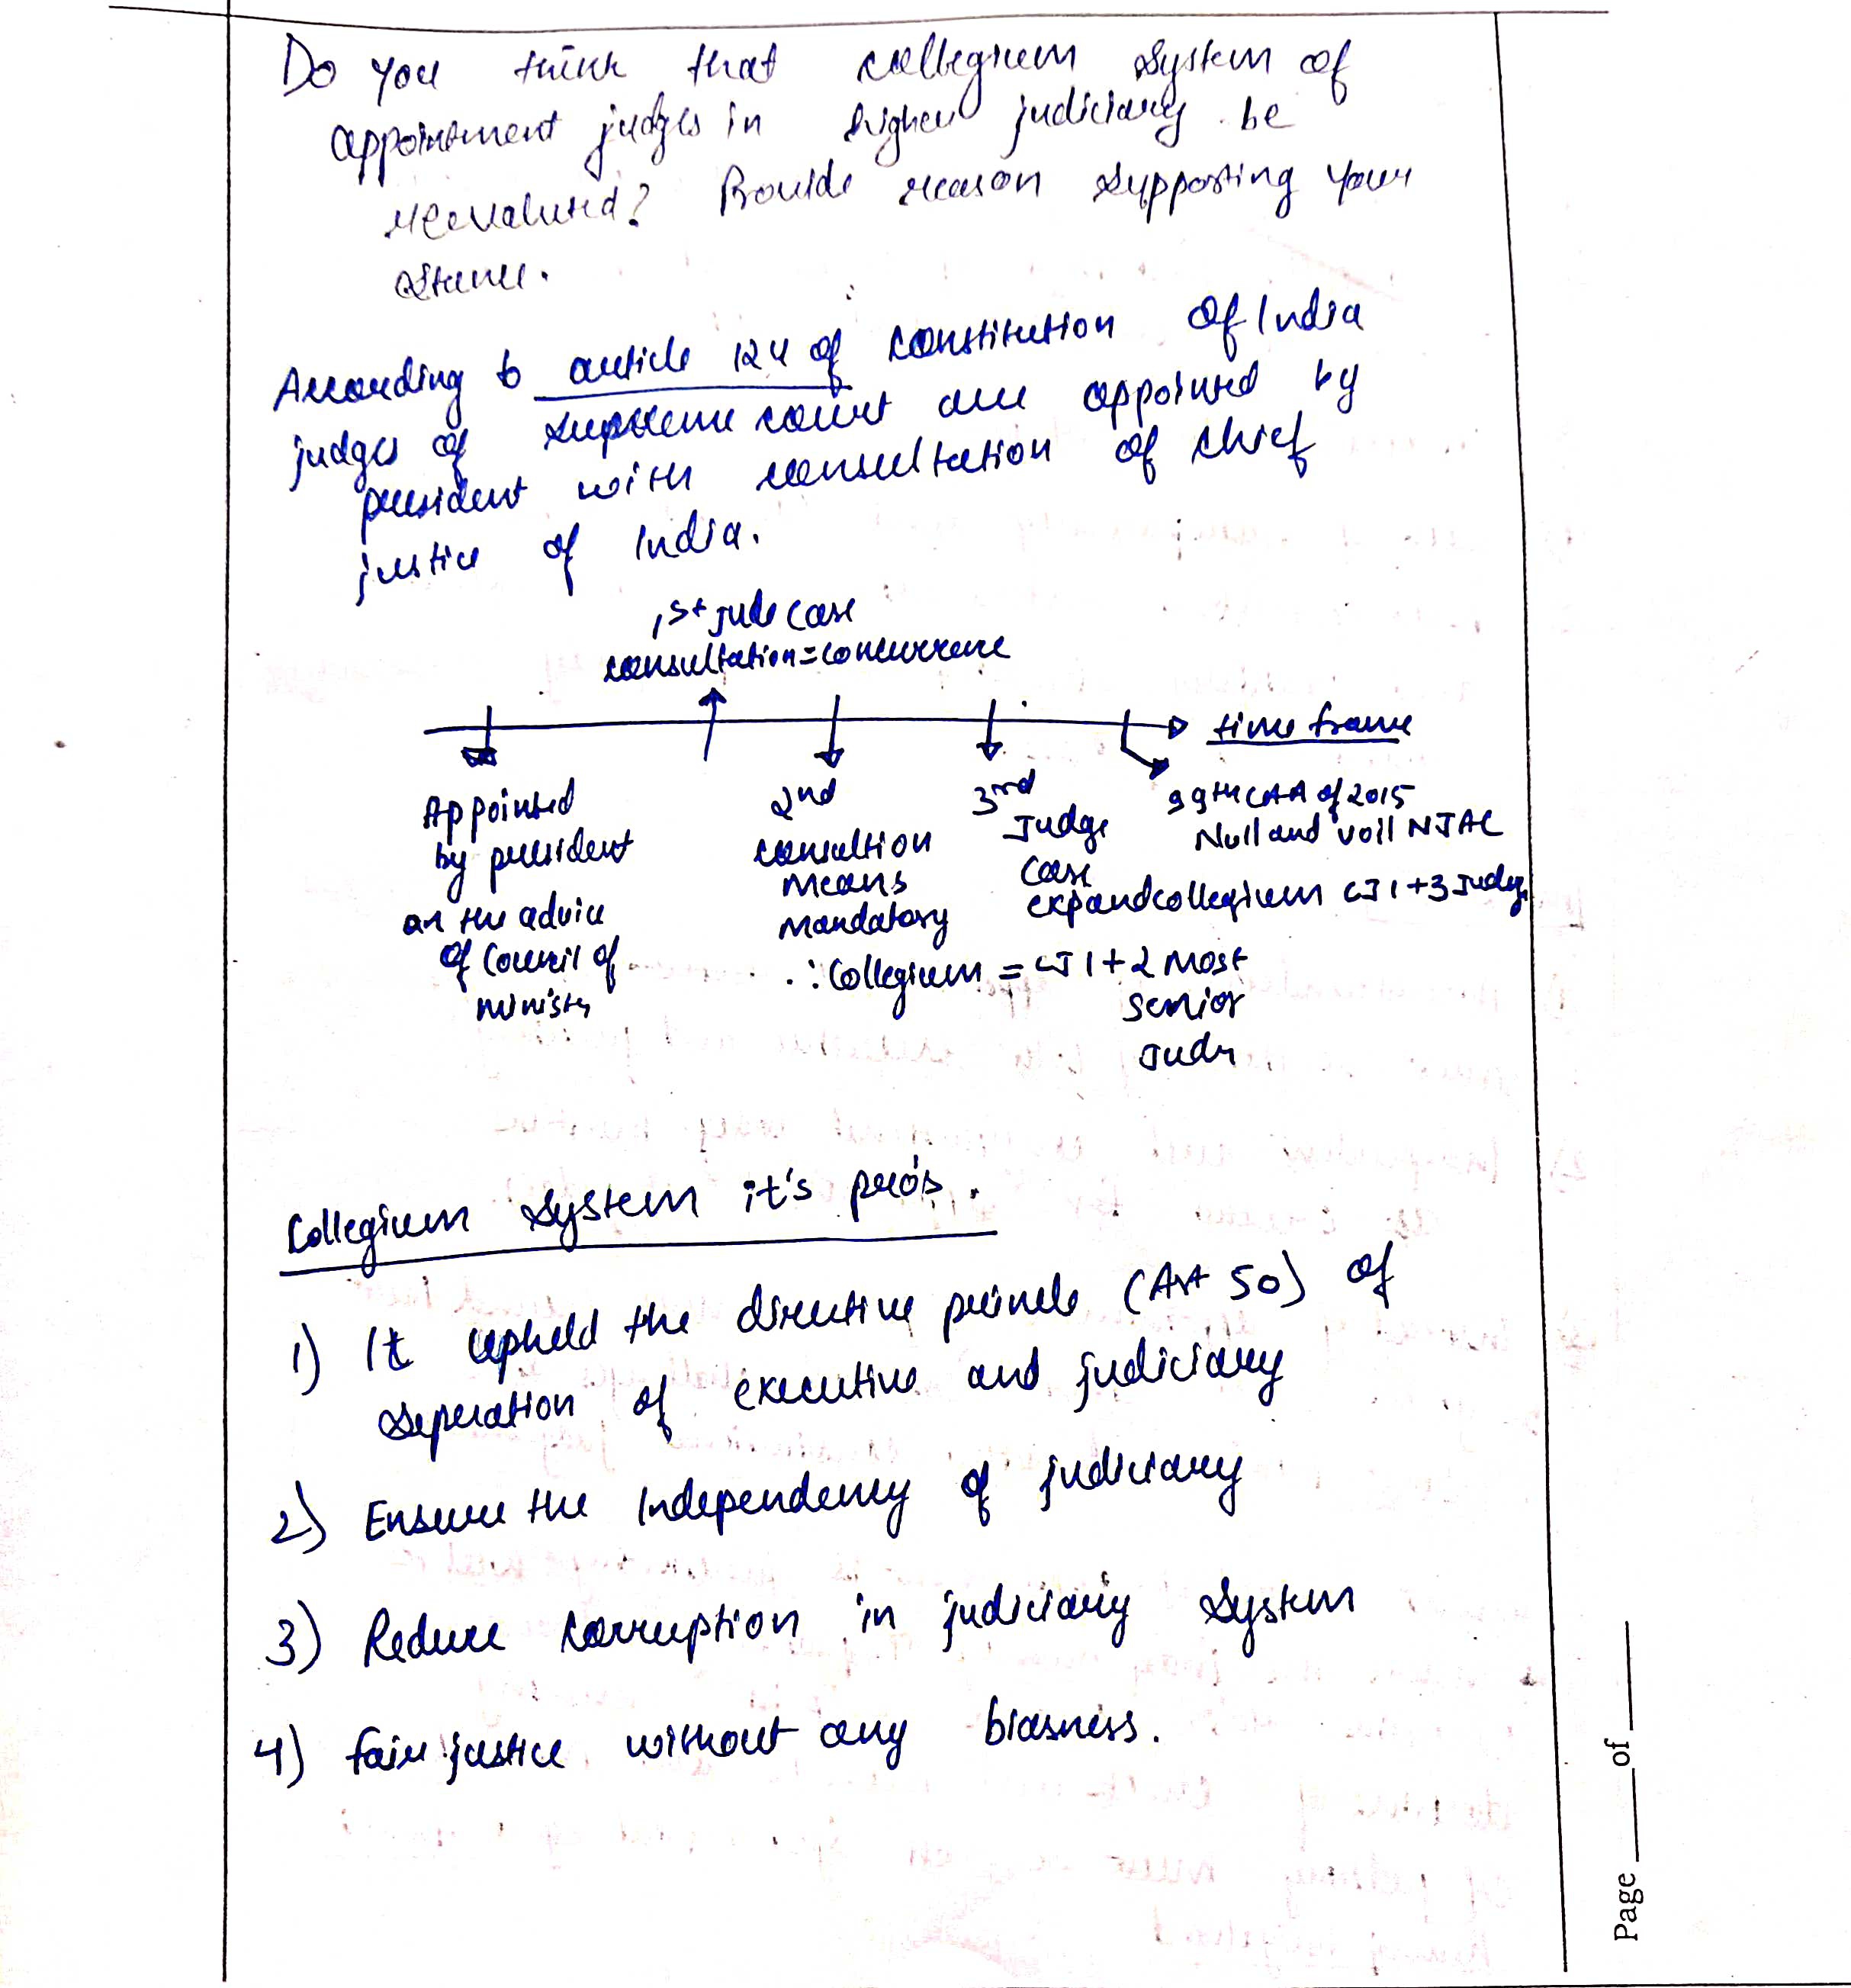 Do you think that collegium system of
appointment judges in higher judiciary be
reevaluted? Provide reason supporting your
stance.
According to article 124 of constitution of India
judges of supreme court are appointed by
president with consultation of chief
justice of India.
1st jude case
consultation = concurrence
time frame
Appointed
by president
on the advice
of Council of
ministr
2nd
consultion
means
mandatory
∴ Collegium = CJI + 2 most
senior
Judr
3rd
Judge
case
expand collegium CJI + 3 Judge
99th CAA of 2015
Null and voil NJAC
Collegium system it's pro's.
1) It upheld the directive princle (Art 50) of
seperation of executive and judiciary
2) Ensure the Independency of judiciary
3) Reduce corruption in judiciary system
4) fair justice without any biasness.
Page ____ of ____